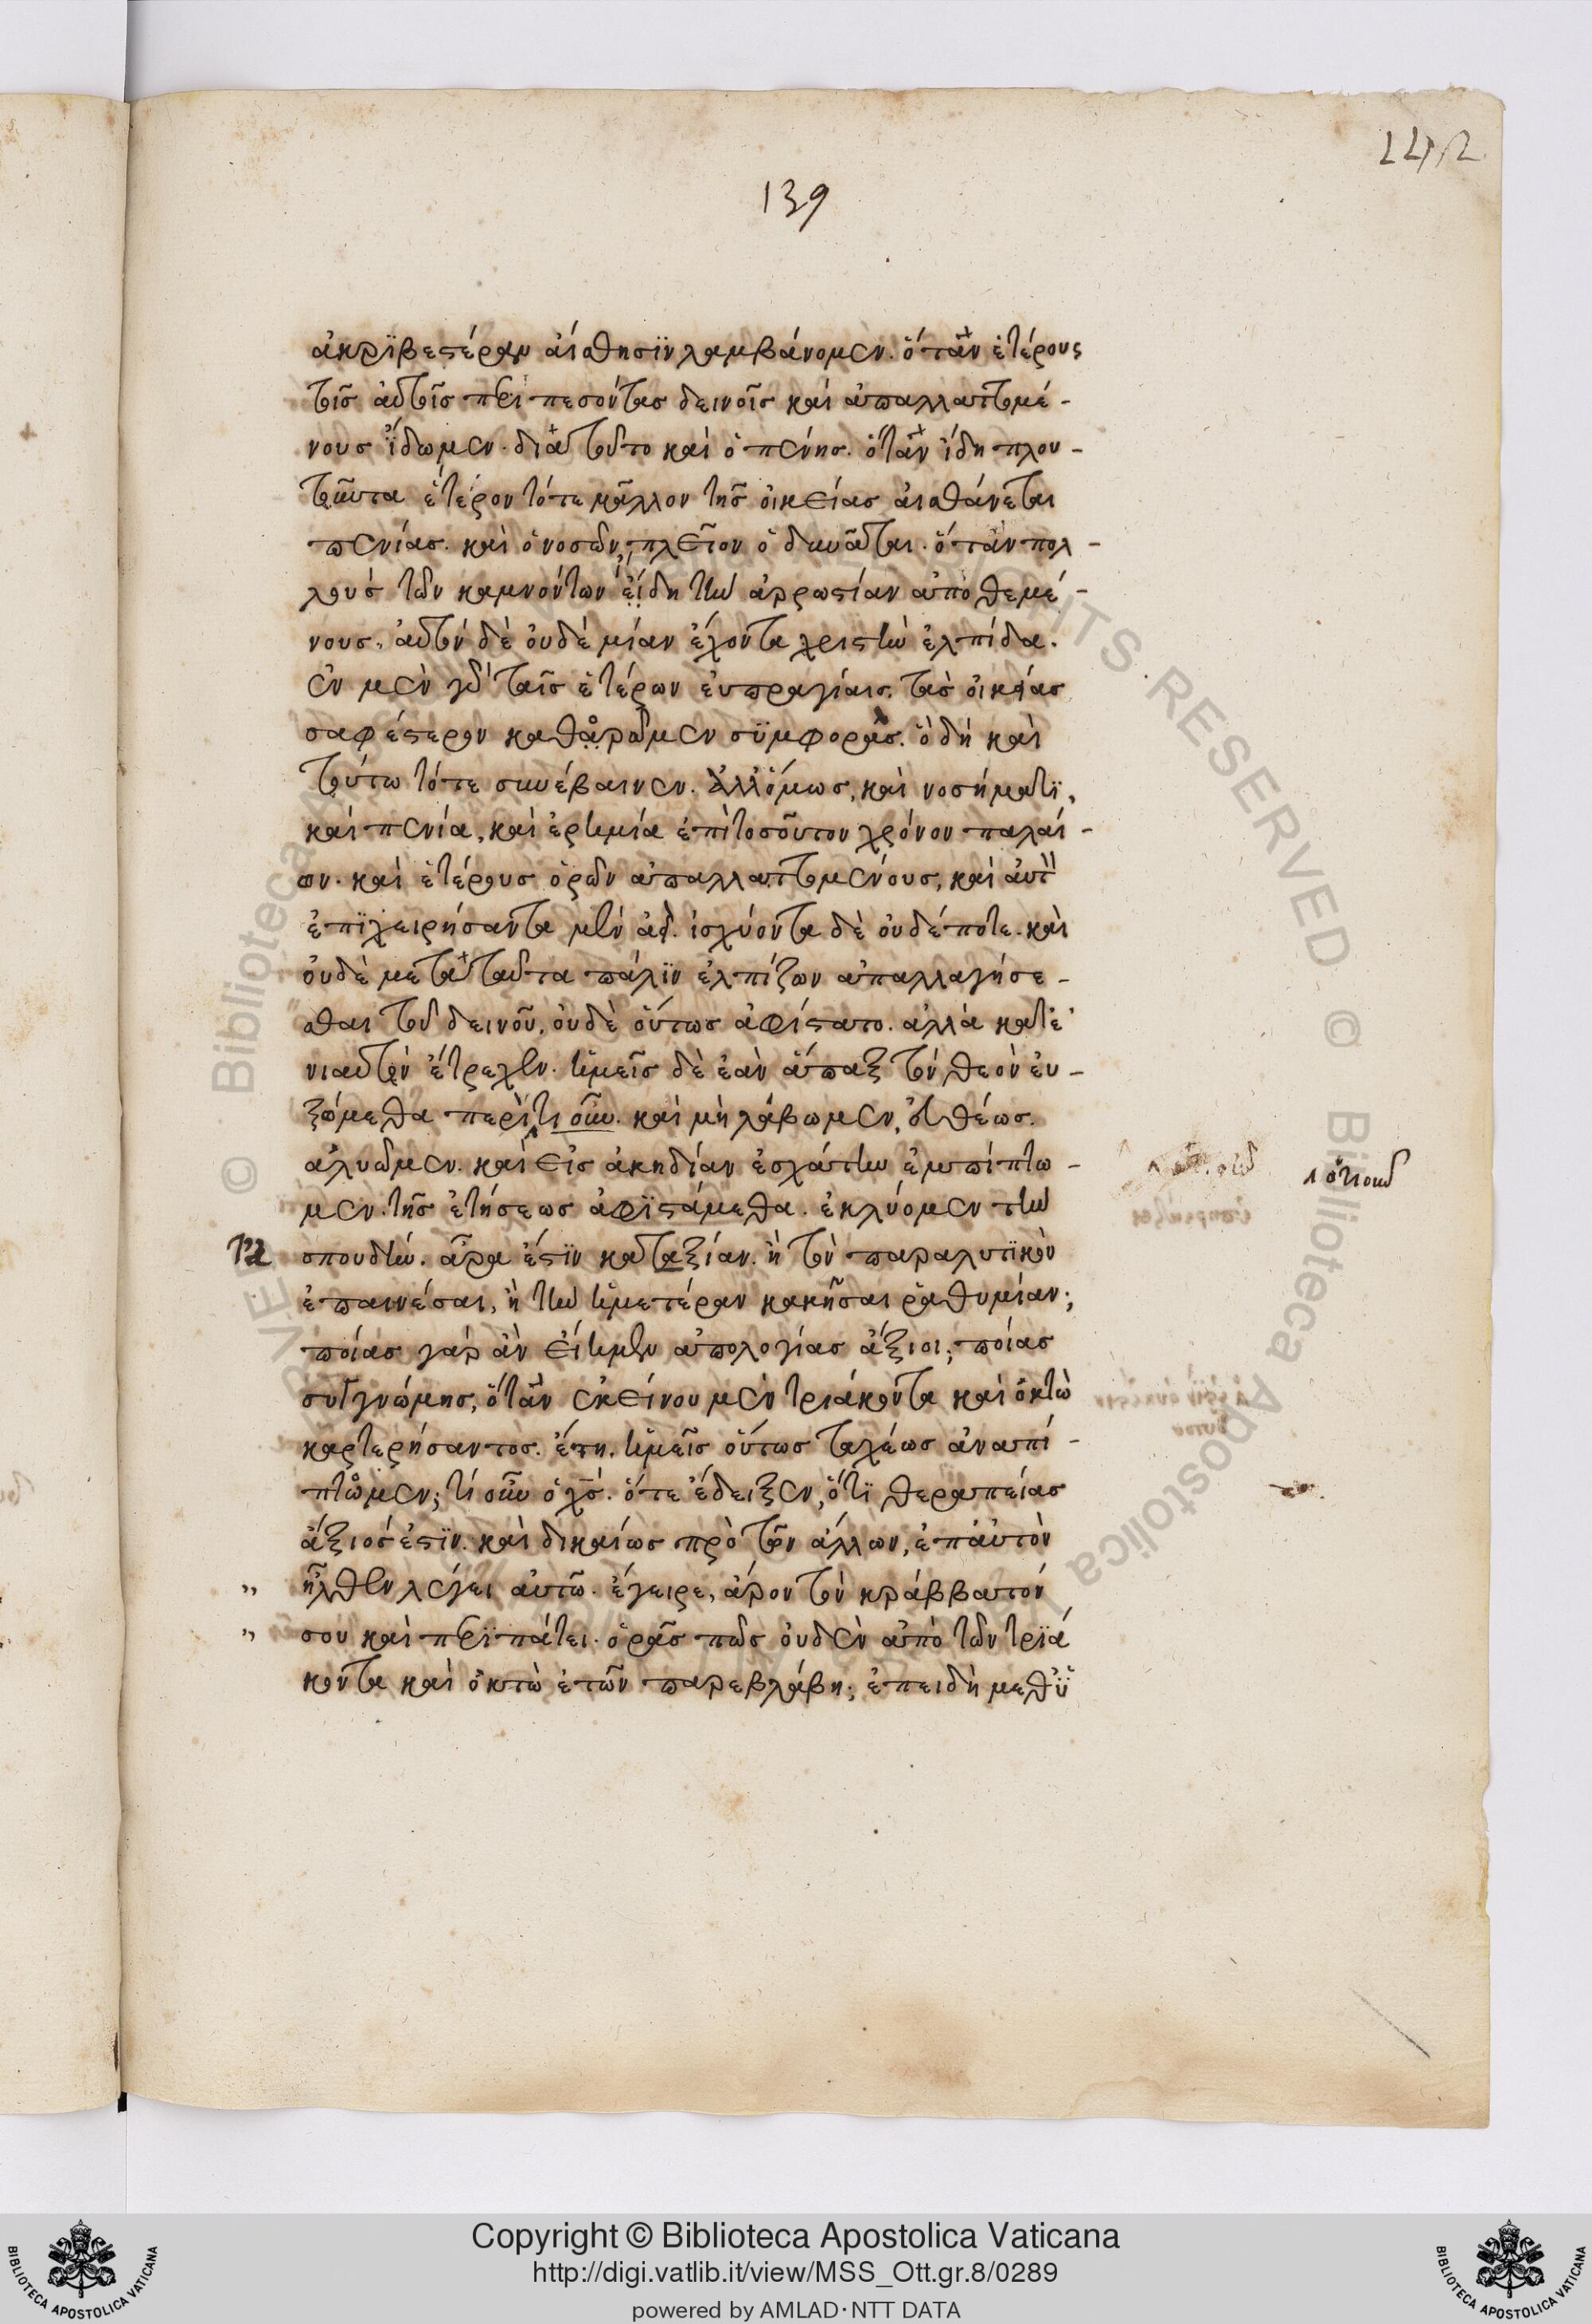 142
139
ἀκριβεστέραν αἴσθησϊν λαμβάνομεν. ὅταν ἑτέρους
τοῖς αὐτοῖς περιπεσόντας δεινοῖς καὶ ἀπαλλαττομέ-
νους ἴδωμεν. διὰ τοῦτο καὶ ὁ πένης. ὅταν ἴδη πλου-
τοῦντα ἕτερον τότε μᾶλλον τῆς οἰκείας αἰσθάνεται
πενίας. καὶ ὁ νοσῶν, πλεῖον ὀδυνᾶται. ὅταν πολ-
λοὺς τῶν καμνόντων εἴδη τὴν ἀρρωστίαν ἀποθεμέ-
νους. αὐτὸν δὲ οὐδὲ μίαν ἔχοντα χρηστὴν ἐλπίδα.
ἐν μὲν γὰρ ταῖς ἑτέρων εὐπραγίαις. τὰς οἰκείας
σαφέστερον καθορῶμεν συμφοράς. ὃ δὴ καὶ
τούτω τότε συνέβαινεν. ἀλλ' ὅμως, καὶ νοσήματϊ,
καὶ πενία, καὶ ἐρημία ἐπὶ τοσοῦτον χρόνον παλαί-
ων. καὶ ἑτέρους ὁρῶν ἀπαλλαττομένους, καὶ αὐτὸν
ἐπϊχειρήσαντα μὲν ἀεὶ. ἰσχύοντα δὲ οὐδέποτε. καὶ
οὐδὲ μετὰ ταῦτα πάλϊν ἐλπίζων ἀπαλλαγήσε-
σθαι τοῦ δεινοῦ, οὐδὲ οὕτως ἀφίστατο. ἀλλὰ κατ' ἐ
νιαυτὸν ἔτρεχεν. ἡμεῖς δὲ ἐὰν ἅπαξ τὸν θεὸν εὐ-
ξόμεθα περί τι οὖν. καὶ μὴ λάβωμεν, εὐθέως.
ἀλυῶμεν. καὶ εἰς ἀκηδίαν ἐσχάτην ἐμπίπτω-
μεν. τῆς ἐτήσεως ἀφϊστάμεθα. ἐκλύομεν τὴν
σπουδήν. ἆρα ἔστϊν κατ' ἀξίαν. ἢ τὸν παραλυτϊκὸν
ἐπαινέσαι, ἢ τὴν ἡμετέραν κακῆσαι ῥαθυμίαν;
ποίας γὰρ ἂν εἴημεν ἀπολογίας ἄξιοι; ποίας
συγγνώμης, ὅταν ἐκείνου μὲν τριάκοντα καὶ ὀκτὼ
καρτερήσαντος. ἔτη. ἡμεῖς οὕτως ταχέως ἀναπί-
πτωμεν; τί οὖν ὁ χς. ὅτε ἔδειξεν, ὅτϊ θεραπείας
ἄξιός ἐστϊν. καὶ δικαίως πρὸ τῶν ἄλλων, ἐπ' αὐτὸν
ἦλθεν λέγει αὐτῷ. ἔγειρε, ἆρον τὸν κράββατόν
σου καὶ περϊπάτει. ὁρᾷς πῶς οὐδὲν ἀπὸ τῶν τρϊά
κοντα καὶ ὀκτὼ ἐτῶν παρεβλάβη; ἐπειδὴ μεθ' ὑ
Copyright © Biblioteca Apostolica Vaticana
http://digi.vatlib.it/view/MSS_Ott.gr.8/0289
powered by AMLAD·NTT DATA